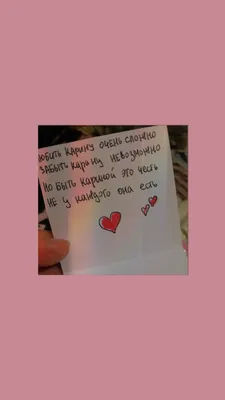 ЛЮБИТЬ КАРИНУ ОЧЕНЬ СЛОЖНО
ЗАБЫТЬ КАРИНУ НЕВОЗМОЖНО
НО БЫТЬ КАРИНОЙ ЭТО ЧЕСТЬ
НЕ У КАЖДОГО ОНА ЕСТЬ